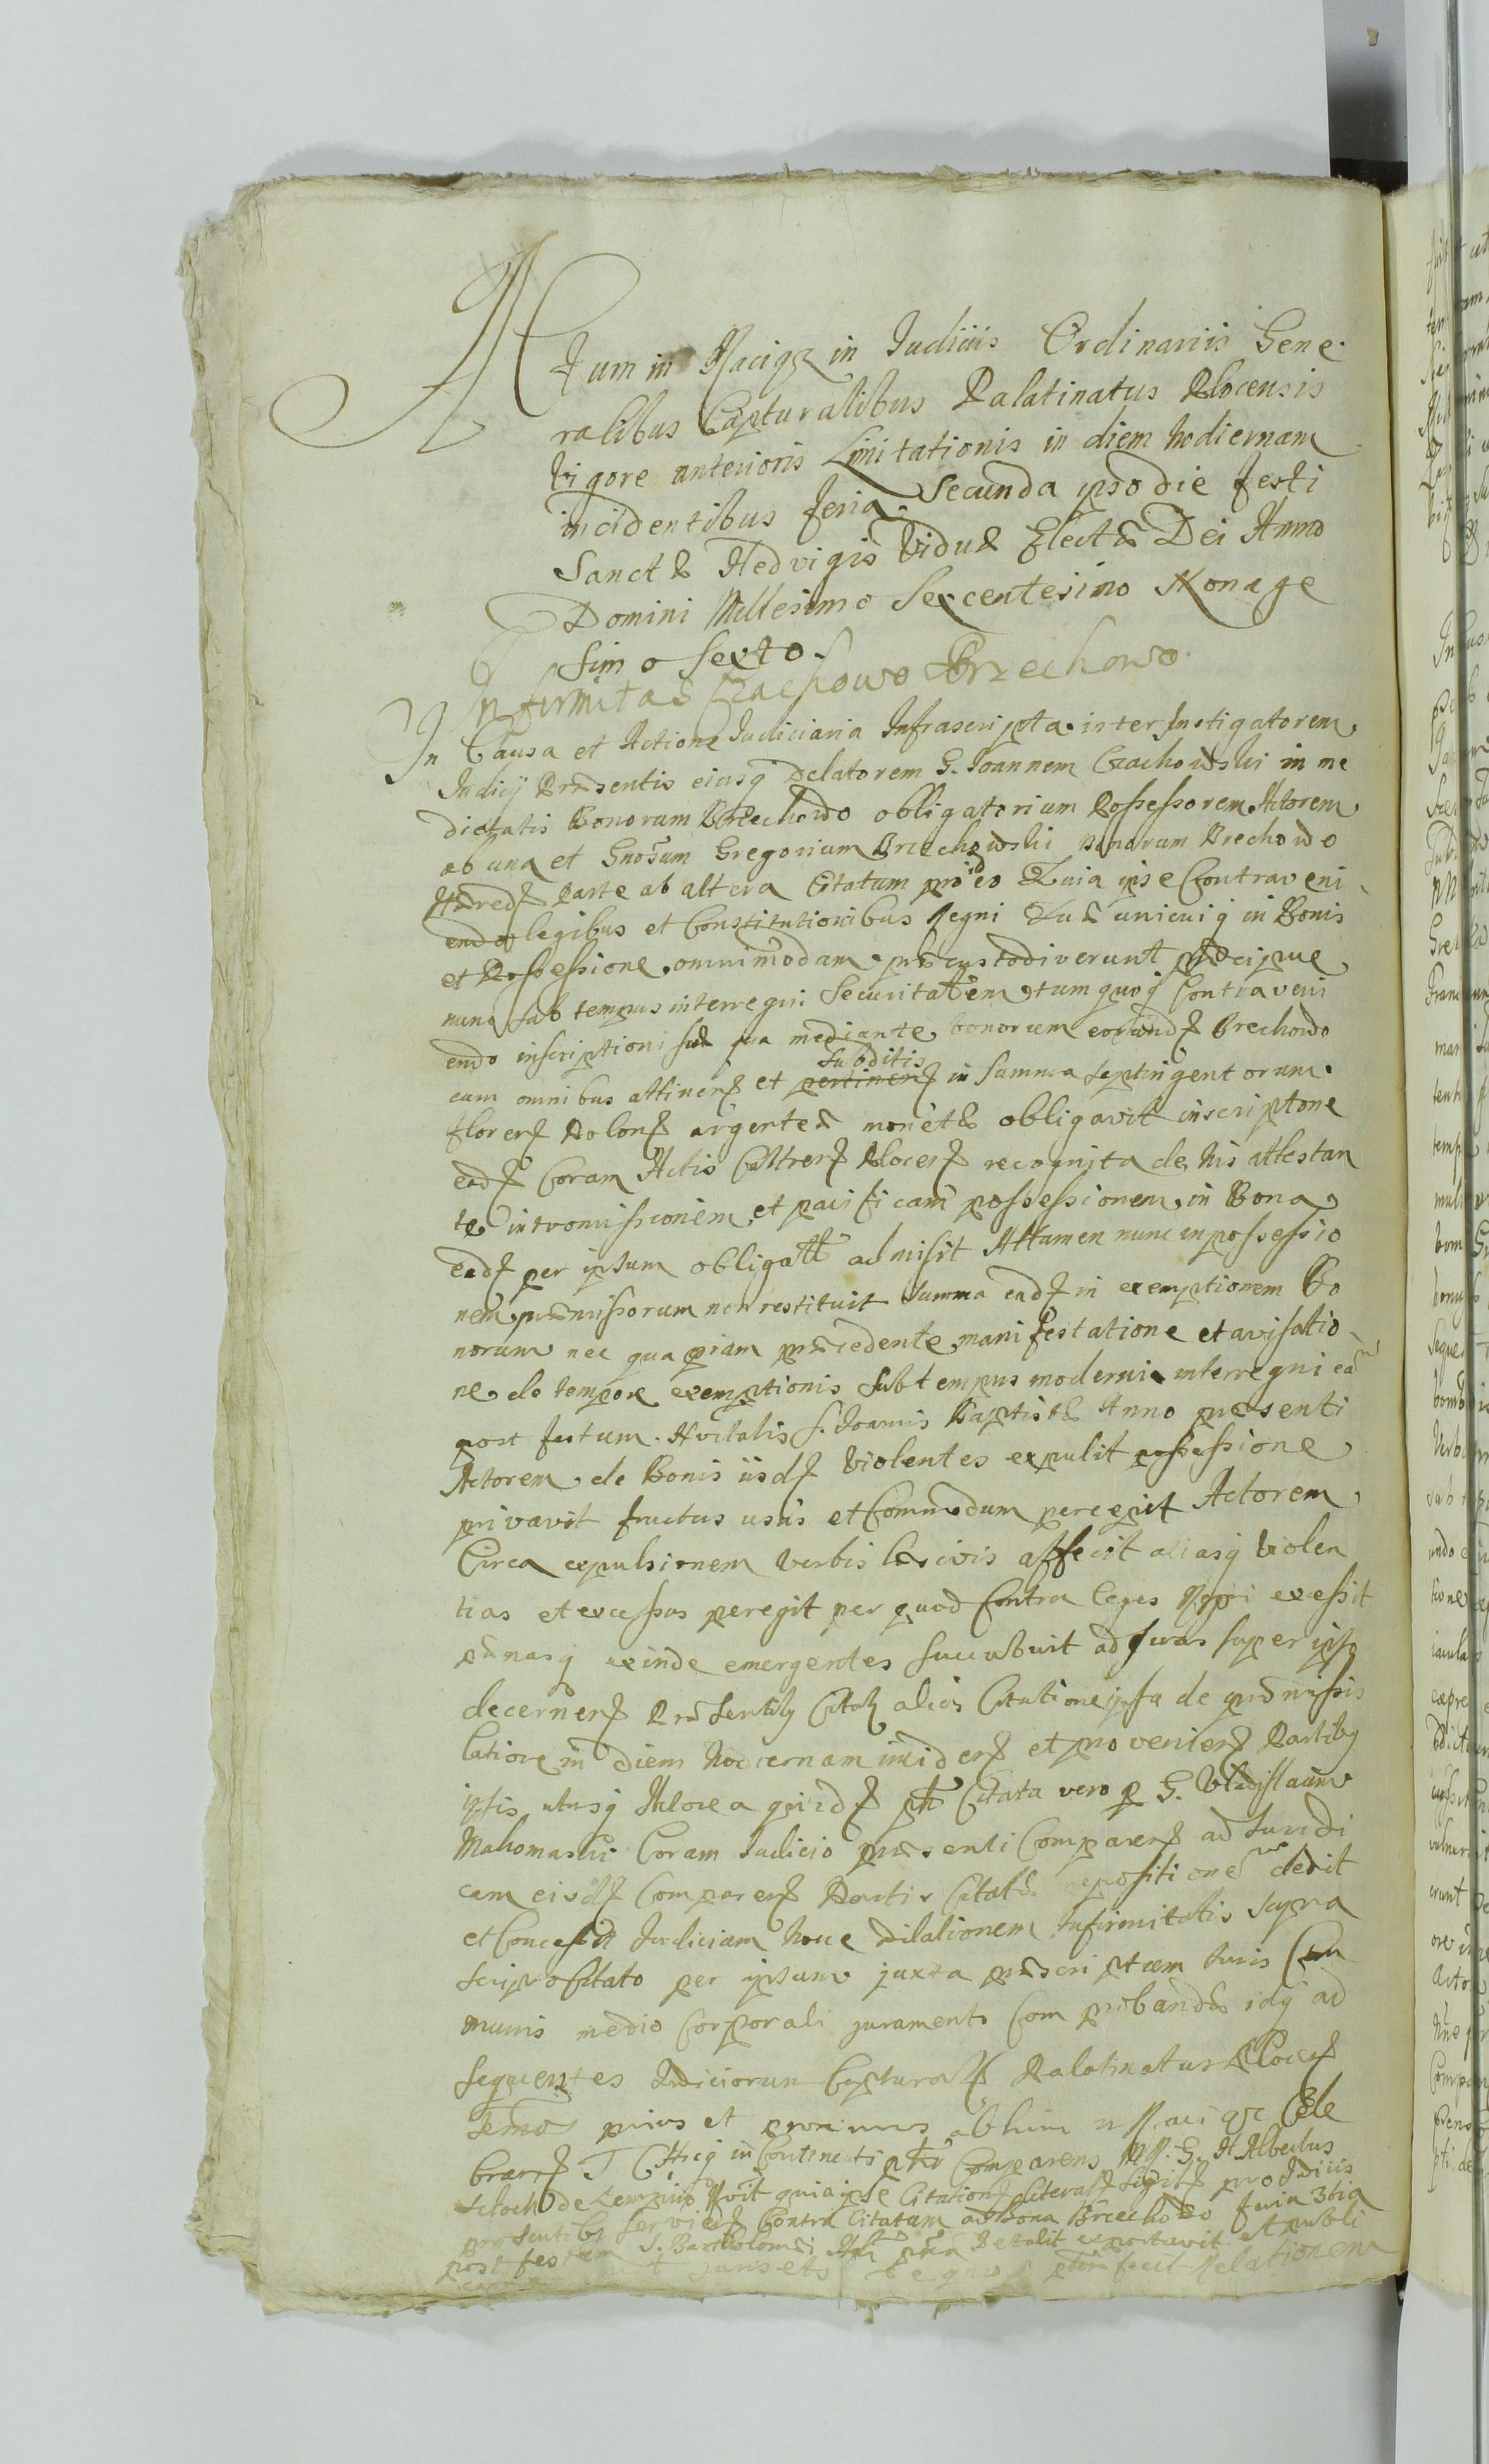 Actum in Raciąz in Iudiciis Ordinariis Gene
ralibus Capturalibus Palatinatus Plocensis
Vigore anterioris Limitationis in diem hodiernam
incidentibus feria Secunda ipso die festi
Sanctæ Hedvigis Viduæ Electæ Dei Anno
Domini Millesimo Sexcentesimo Nonage
simo sexto.
Infirmitas Czachowo Brzechowo
In Causa et Actione Iudiciaria Infrascripta inter Instigatorem
Iudicij Præsentis eiusq Delatorem G. Ioannem Czachowski in me
dietatis Bonorum Brzechowo obligatorium Possessorem Actorem
ab una et Gnosum Gregorium Brzechowski bonorum Brechowo
Hæred Parte ab altera Citatum pro eo id Quia ipse Contraveni
endo legibus et Constitutionibus Regni Quæ unicuiq in Bonis
et Possessione omnimodam præcustodiverunt præcipue
nunc sub tempus interregni Securitatem tum quoq Contraveni
endo inscriptioni suæ qua mediante bonorum eorund Brechowo
cum omnibus attinen et subditis in Summa septingentorum
floren Polon argenteæ monetæ obligavit inscriptone
ead Coram Actis Castren Plocen recognita de his attestan
te intromissionem et pacificam possessionem in Bona
ead per ipsum obligatt admisit Attamen nunc in possessio
nem præmissorum non restituit Summa ead in exemptionem Bo
norum nec quapiam præcedente manifestatione et avisatio
ne de tempore exemptionis sub tempus moderni interregni ea
post festum Nvitatis S. Ioannis Baptistæ Anno præsenti
Actorem de Bonis iisd violentes expulit possessione
privavit fructus usus et Commodum percepit Actorem
Circa expulsionem verbis læsivis affecit aliasq violen
tias et excessus peregit per quod Contra leges Regni excessit
pænasq exinde emergentes succubuit ad quas super ipso
decernen Præsentiby Citatq alias Citatione ipsa de præmissis
latiore in Diem hodiernam inciden et provenien Partiby
ipsis utrisq Actorea quid ptr Citata vero p G. Vladislaum
Mahomaski Coram Iudicio præsenti Comparen ad Iuridi
cam eisd Comparen Partis Citatæ positione dedit
et Concessit Iudicium hocce dilationem Infirmitatis Supra
scripto Citato per ipsum juxta præscriptum Iuris Com
munis medio Corporali juramento Comprobandæ idq ad
sequentes Iudiciorum Captural Palatinatus Plocen
Termos prius et proximus abhinc Raciąz Cele
bran T Hicq in Continenti ptr Comparens M. G. Albertus
Szloch de Lempino quia ipse Citation literas pro Iudiciis
præsentiby servien Contra Citatum ad Bona Brzechowo feria 3tia
post festum S. Bartholomæi Apli præn Detulit exportavit et publi
cavit juris ets De quo ptm fecit Relationem